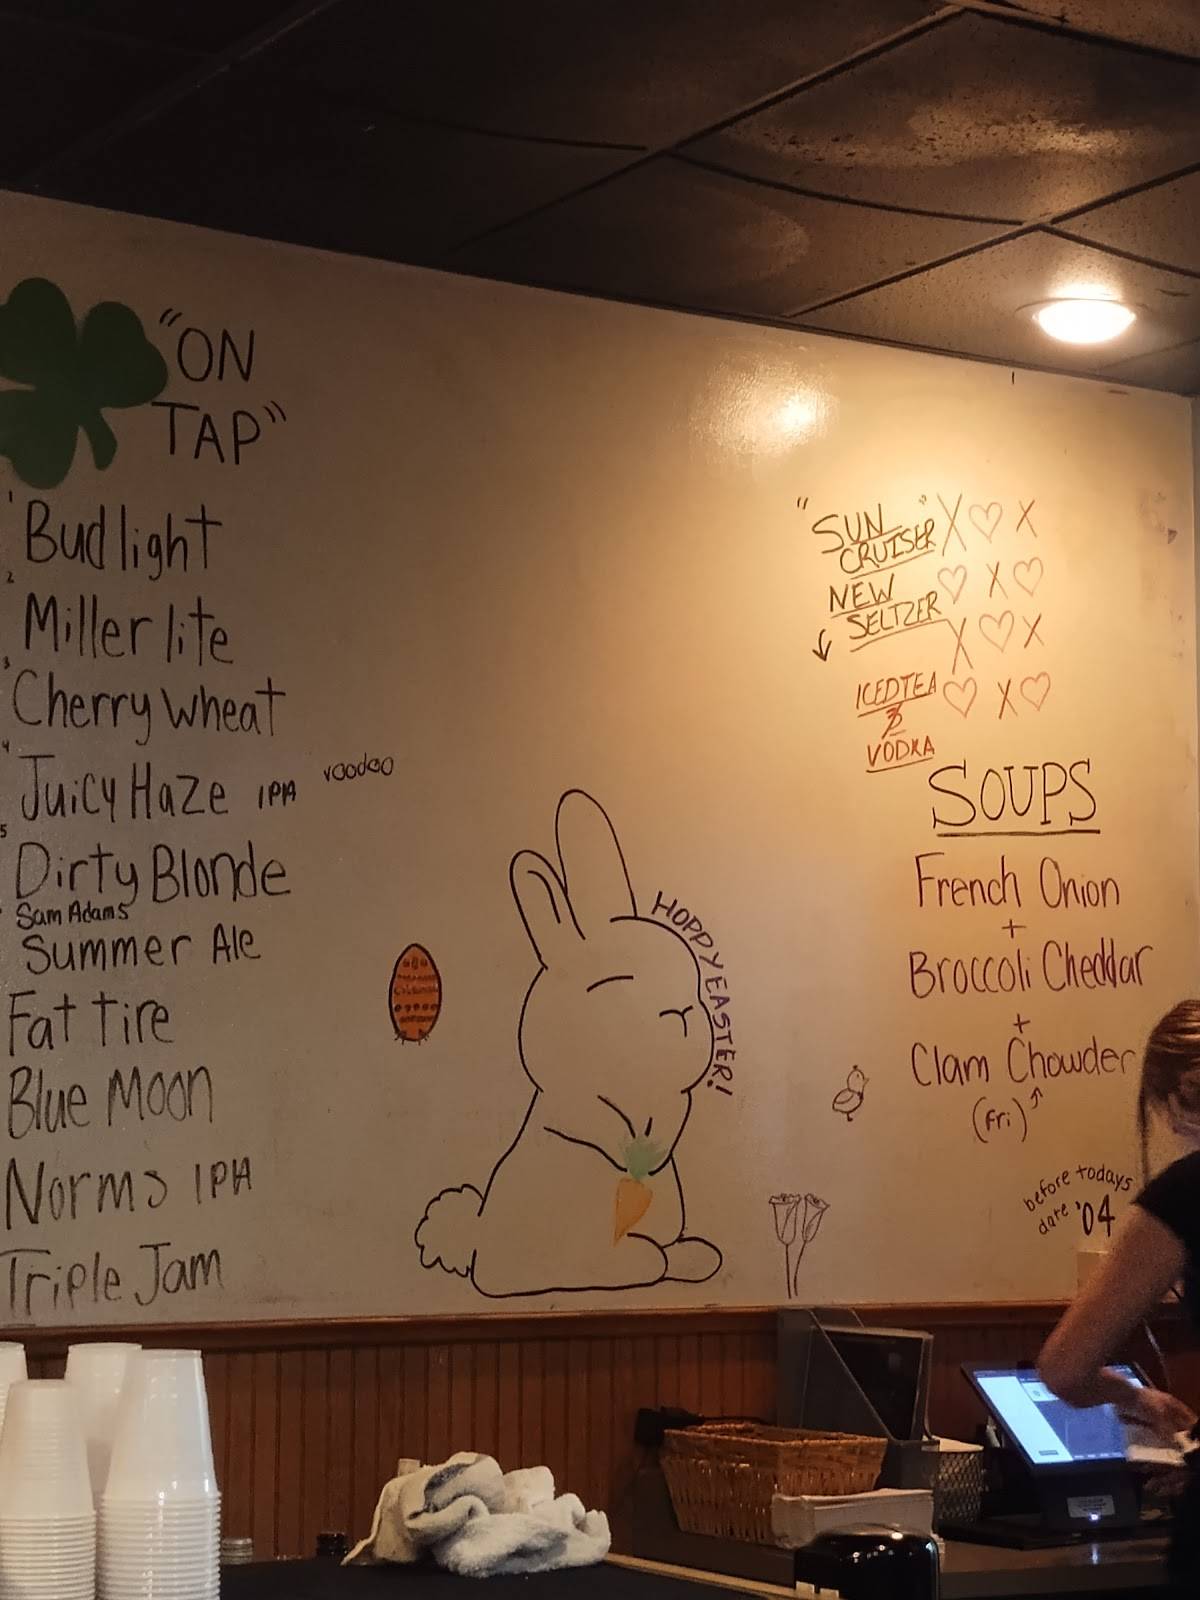 "ON
TAP"
1 Bud light
2 Miller lite
3 Cherry Wheat
4 Juicy Haze IPA voodoo
5 Dirty Blonde
Sam Adams
Summer Ale
Fat Tire
Blue Moon
Norms IPA
Triple Jam
HOPPY EASTER!
"SUN
CRUISER"
NEW
SELTZER
ICED TEA
&
VODKA
SOUPS
French Onion
+
Broccoli Cheddar
+
Clam Chowder
(Fri)
before todays
date '04